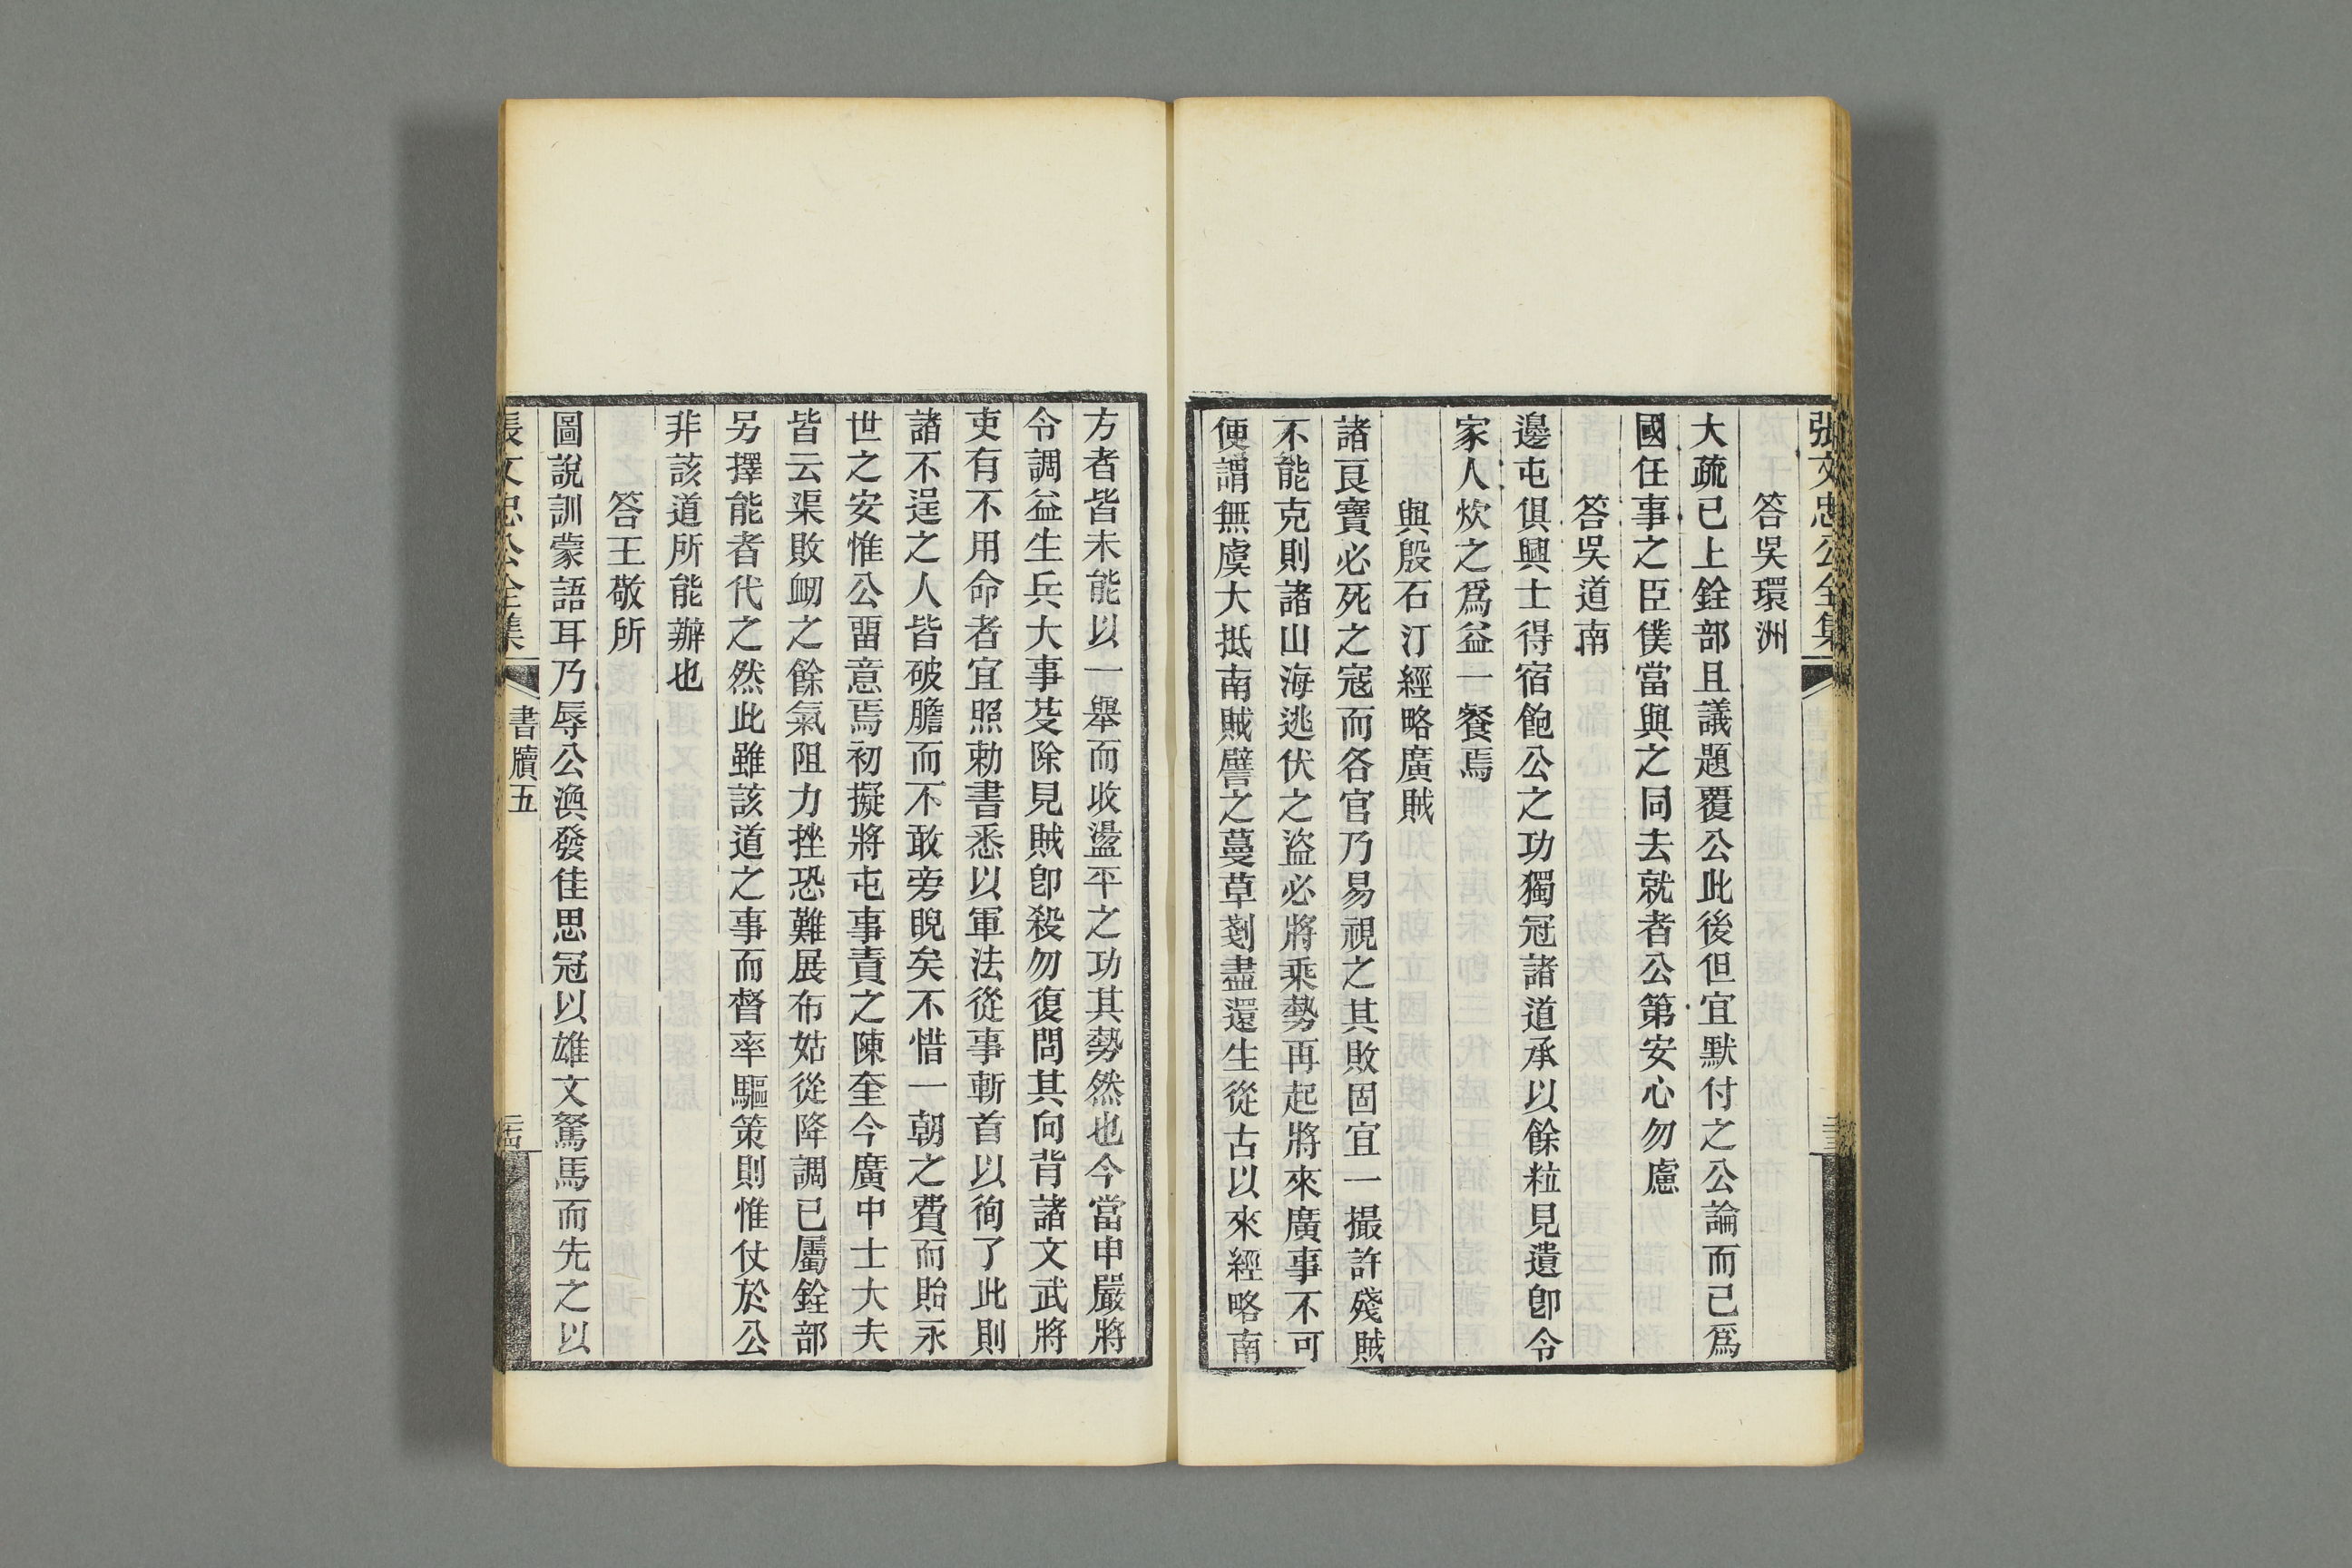 張文忠公全集
答吳環洲
大疏已上銓部且議題覆公此後但宜默付之公論而已爲
國任事之臣僕當與之同去就者公第安心勿慮
答吳道南
邊屯俱興士得宿飽公之功獨冠諸道承以餘粒見遺卽令
家人炊之爲益一餐焉
與殷石汀經略廣賊
諸良寶必死之寇而各官乃易視之其敗固宜一撮許殘賊
不能克則諸山海逃伏之盜必將乘勢再起將來廣事不可
便謂無虞大抵南賊譬之蔓草剗盡還生從古以來經略南
方者皆未能以一舉而收盪平之功其勢然也今當申嚴將
令調益生兵大事芟除見賊卽殺勿復問其向背諸文武將
吏有不用命者宜照勅書悉以軍法從事斬首以徇了此則
諸不逞之人皆破膽而不敢旁睨矣不惜一朝之費而貽永
世之安惟公畱意焉初擬將屯事責之陳奎今廣中士大夫
皆云渠敗衂之餘氣阻力挫恐難展布姑從降調已屬銓部
另擇能者代之然此雖該道之事而督率驅策則惟仗於公
非該道所能辦也
答王敬所
圖說訓蒙語耳乃辱公渙發佳思冠以雄文駑馬而先之以
張文忠公全集
書牘五